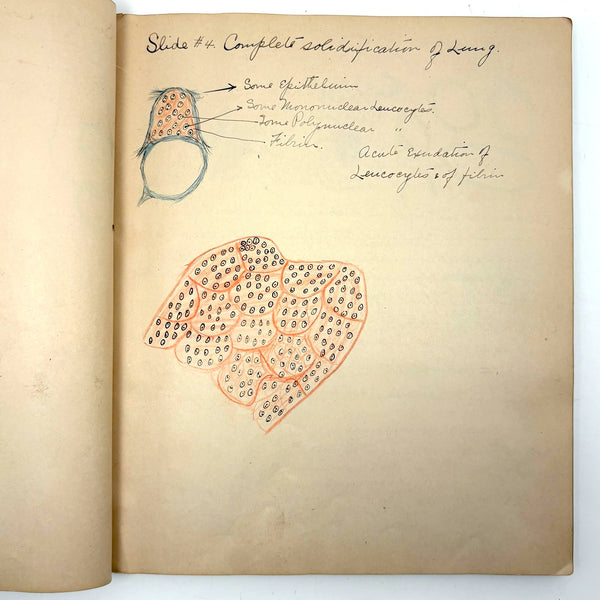 Slide #4. Complete solidification of Lung.
Some Epithelium
Some Mononuclear Leucocytes.
Some Polynuclear "
Fibrin.
Acute Exudation of
Leucocytes & of fibrin